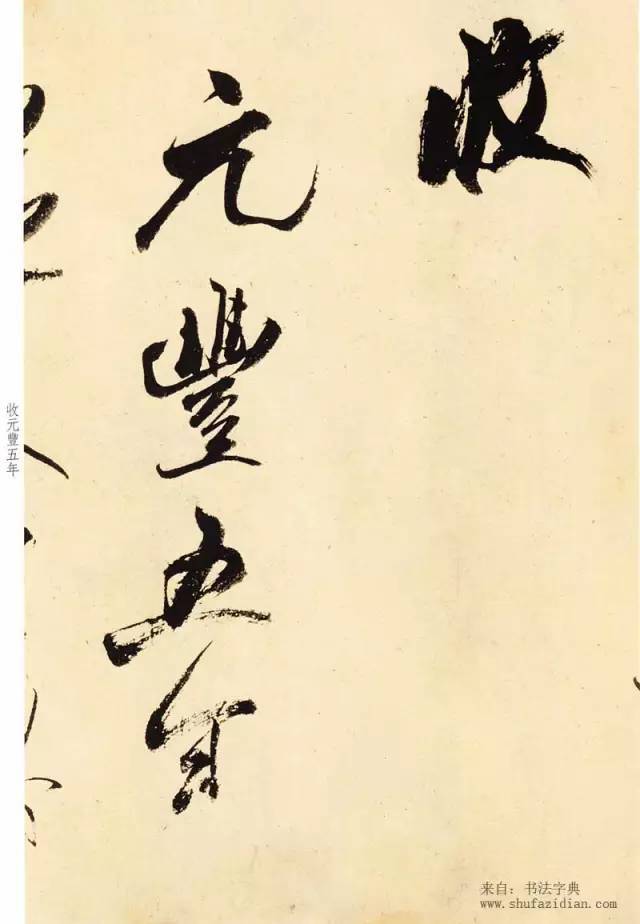 收
元豐五年
收元豐五年
来自：书法字典
www.shufazidian.com